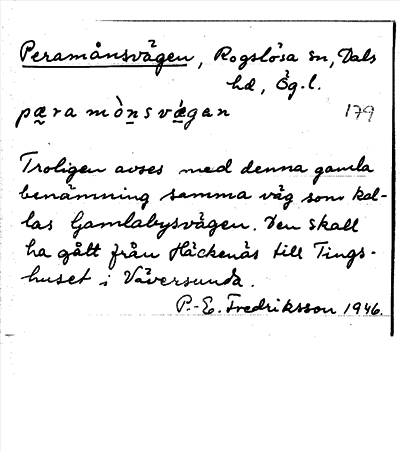 Peramånsvägen, Rogslösa sn, Dals
hd, Ög.l.
pæra mònsvǽgan 179
Troligen avses med denna gamla
benämning samma väg som kal-
las Gamlabysvägen. Den skall
ha gått från Häckenäs till Tings-
huset i Väversunda.
P.-E. Fredriksson 1946.